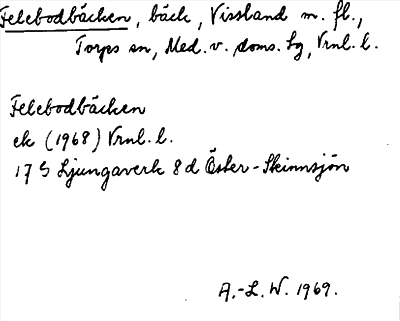 Felebodbäcken, bäck, Vissland m. fl.,
Torps sn, Med. v. doms. hg, Vrnl. l.
Felebodbäcken
ek (1968) Vrnl. l.
17 G Ljungaverk 8 d Öster-Skinnsjön
A.-L. W. 1969.